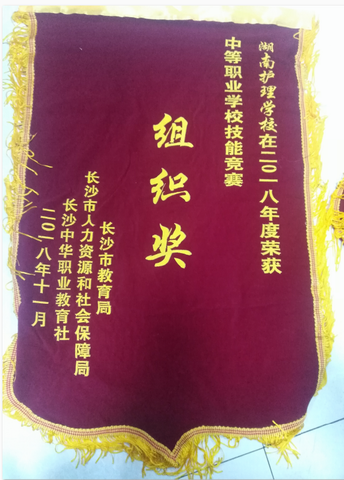 湖南护理学校在二〇一八年度荣获
中等职业学校技能竞赛
组织奖
长沙市教育局
长沙市人力资源和社会保障局
长沙中华职业教育社
二〇一八年十一月